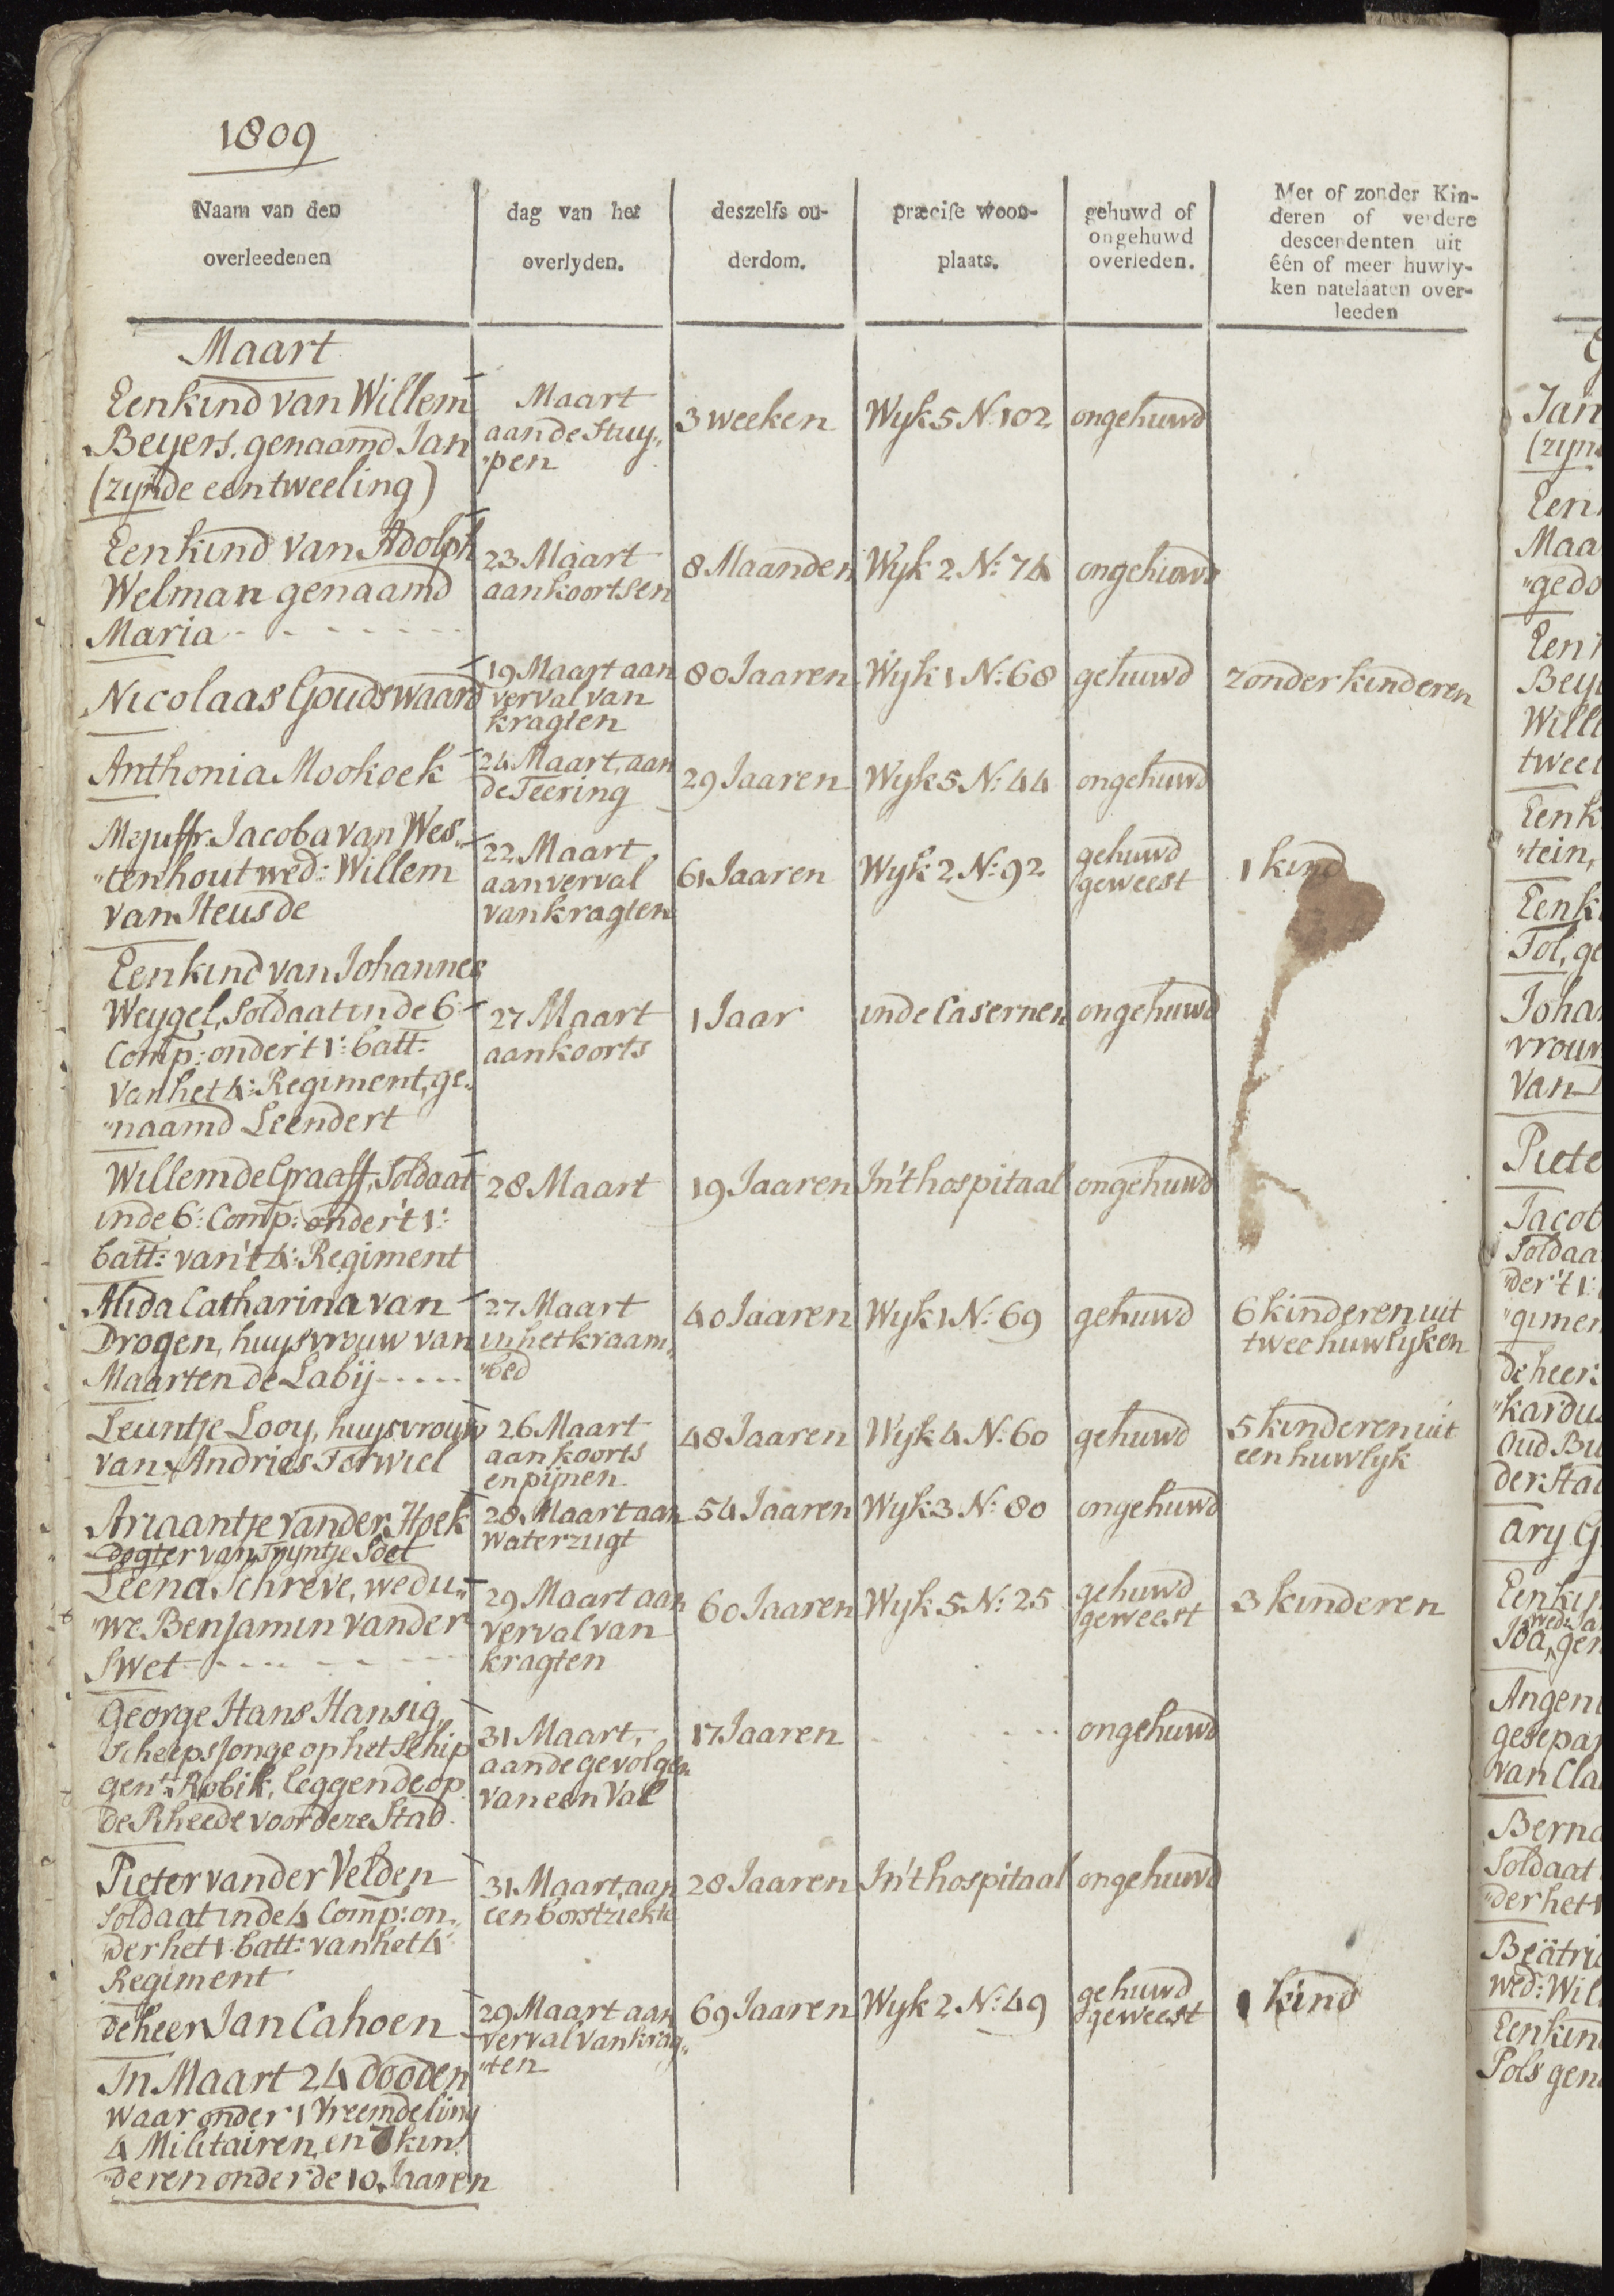 1809
Naam van den
overleedenen
dag van het
overlyden.
deszelfs ou-
derdom.
præcise woon-
plaats.
gehuwd of
ongehuwd
overleden.
Met of zonder Kin-
deren of verdere
descendenten uit
één of meer huwly-
ken natelaaten over-
leeden
Maart
Een kind van Willem
Beyers, genaamd Jan
(zynde een tweeling)
Maart
aan de Stuy„
„pen
3 weeken
Wyk 5 N: 102
ongehuwd
Een kind van Adolph
Welman genaamd
Maria - - - - - - -
23 Maart
aan koortsen
8 Maanden
Wyk 2 N: 74
ongehuwd
Nicolaas Goudswaard
19 Maart aan
verval van
kragten
80 Jaaren
Wyk 1 N: 68
gehuwd
zonder kinderen
Anthonia Mookoek
24 Maart, aan
de Teering
29 Jaaren
Wyk 5 N: 44
ongehuwd
Mejuffr. Jacoba van Wes„
„tenhout wed: Willem
van Heusde
22 Maart
aan verval
van kragten
61 Jaaren
Wyk 2 N: 92
gehuwd
geweest
1 kind
Een kind van Johannes
Weygel, Soldaat in de 6:
Comp: onder t 1: batt:
van het 4: Regiment, ge„
„naamd Leendert
27 Maart
aan koorts
1 Jaar
in de Casernen
ongehuwd
Willem de Graaff, Soldaat
in de 6: Comp: onder 't 1:
batt: van 't 4: Regiment
28 Maart
19 Jaaren
In 't hospitaal
ongehuwd
Alida Catharina van
Drogen, huysvrouw van
Maarten de Labij - - - - -
27 Maart
in het kraam„
„bed
40 Jaaren
Wyk 1 N: 69
gehuwd
6 kinderen uit
twee huwlyken
Leuntje Looy, huysvrouw
van Andries Torwiel
26 Maart
aan koorts
en pijnen
48 Jaaren
Wyk 4 N: 60
gehuwd
5 kinderen uit
een huwlyk
Ariaantje van der Hoek
dogter van Tryntje Soet
28 Maart aan
waterzugt
54 Jaaren
Wyk 3 N: 80
ongehuwd
Leena Schreve, wedu„
„we Benjamin van der
Swet - - - - - - -
29 Maart aan
verval van
kragten
60 Jaaren
Wyk 5 N: 25
gehuwd
geweest
3 kinderen
George Hans Hansig,
Scheepsjonge op het Schip
gent: Robik, leggende op
de Rheede voor deze Stad.
31 Maart,
aan de gevolgen
van een Val
17 Jaaren
- - - -
ongehuwd
Pieter van der Velden
Soldaat in de 4 Comp: on„
„der het 1 batt: van het 4:
Regiment
31 Maart, aan
een borstziekte
28 Jaaren
In 't hospitaal
ongehuwd
de heer Jan Cahoen
29 Maart aan
verval van krag„
„ten
69 Jaaren
Wyk 2 N: 49
gehuwd
geweest
1 kind
In Maart 24 dooden
waar onder 1 Vreemdeling
4 Militairen, en 7 kin„
„deren onder de 10 Jaaren
Jan
(zyn
Een
Maa
„gedo
Een
Bey
Will
twee
Een k
„tein,
Een k
Tol, ge
Joha
vrouw
van
Piete
Jacob
Soldaa
„der 't 1:
„gimen
de heer:
„kardu
Oud Bu
der Stad
Ary G
Een kin
wed: Ja
gen
Angen
gesepa
van Cla
Berna
Soldaat
„der het
Beätri
wed: Wil
Een kin
Pols gen